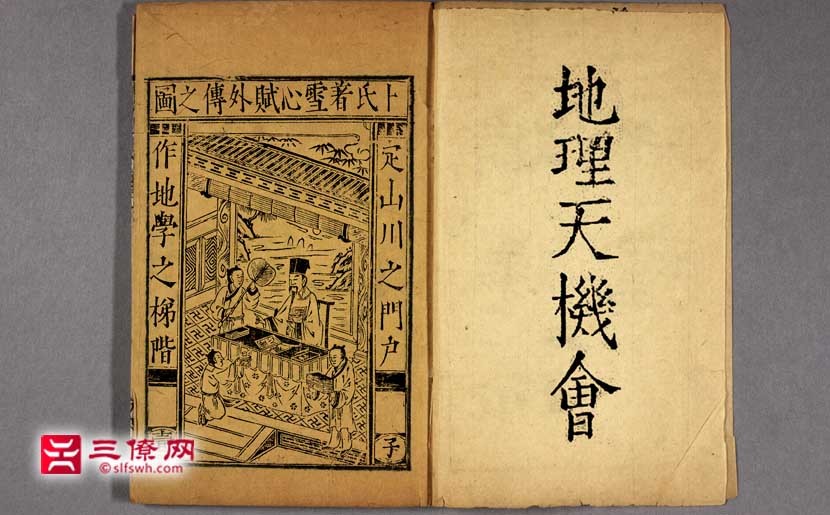 地理天機會
卜氏著雪心賦外傳之圖
定山川之門户
作地學之梯階
子
三僚网
©slfswh.com